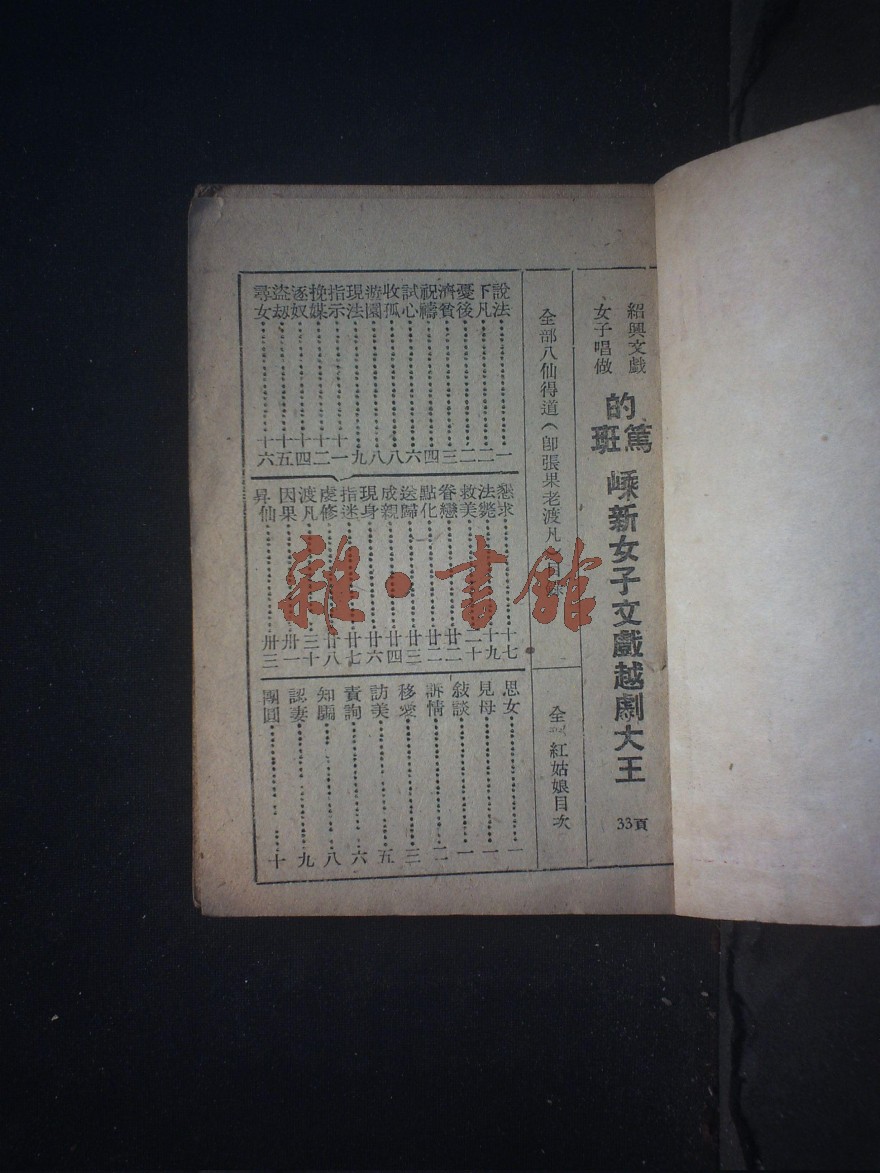 紹興文戲
女子唱做
的篤班
嵊新女子文戲越劇大王
33頁
全部八仙得道(卽張果老渡凡)目次
全部紅姑娘目次
說法 一
下凡 二
憂後 二
濟貧 三
祝禱 四
試心 六
收孤 八
遊園 八
現法 九
指示 十一
挽媒 十二
逐奴 十四
盜劫 十五
尋女 十六
懇求 十七
法斃 十九
救美 二十
眷戀 廿二
點化 廿二
送歸 廿三
成親 廿四
現身 廿六
指迷 廿七
虔修 廿八
渡凡 三十
因果 卅一
昇仙 卅三
思女 一
見母 一
敍談 一
訴情 二
移愛 三
訪美 五
責詢 六
知騙 八
認妻 九
團圓 十
雜·書館